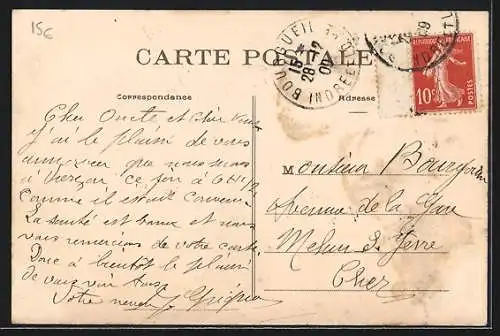 15€
CARTE POSTALE
BOURGUEIL
15 *
28 -12
09
INDRE ET LOIRE
REPUBLIQUE FRANÇAISE
10c
POSTES
Correspondance
Adresse
Cher Oncle et Chère
j'ai le plaisir de vous
que nous
à Vierzon ce soir à 6h 1/2
Comme il était convenu
La santé est bonne et nous
vous remercions de votre carte.
Donc à bientôt le plaisir
de vous voir tous
Votre neveu
Monsieur
Avenue de la Gare
Mehun s. Yèvre
Cher